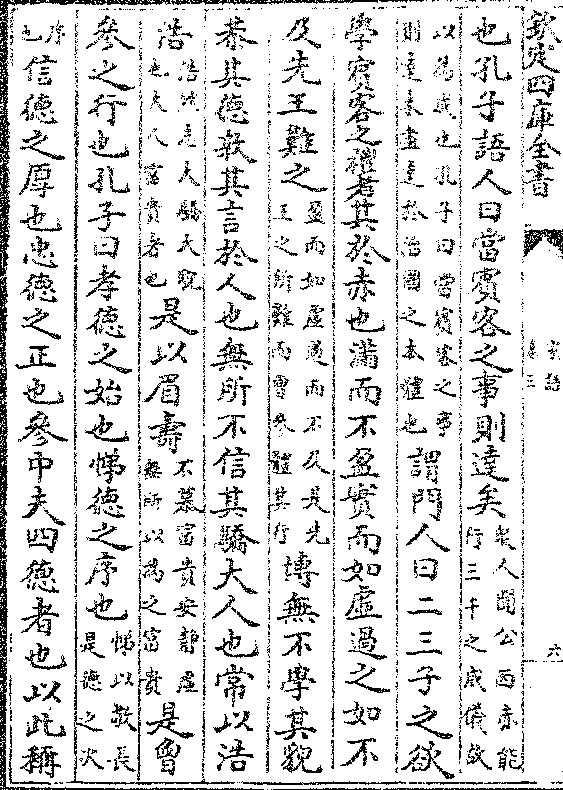 欽定四庫全書
家語
卷三
六
也孔子語人曰當賓客之事則達矣衆人聞公西赤能行三千之威儀故
以為成也孔子曰當賓客之事則達未盡達於治國之本體也謂門人曰二三子之欲
學賓客之禮者其於赤也滿而不盈實而如虛過之如不
及先王難之盈而如虛過而不及是先王之所難而曾參體其行博無不學其貌
恭其德敦其言於人也無所不信其驕大人也常以浩
浩浩浩志大驕大貌也大人富貴者也是以眉壽不慕富貴安靜虛無所以為之富貴是曾
參之行也孔子曰孝德之始也悌德之序也悌以敬長是德之次
序也信德之厚也忠德之正也參中夫四德者也以此稱